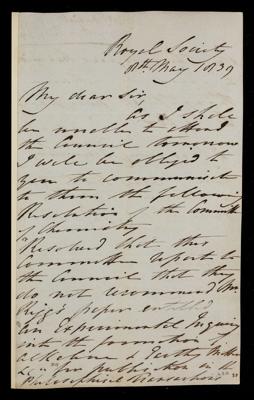 Royal Society
8th May 1839
My dear Sir
As I shall
be unable to attend
the Council tomorrow
I will be obliged to
you to communicate
to them the following
Resolution of the Committee
of Chemistry
"Resolved that this
Committee report to
the Council that they
do not recommend Mr
Rigg's paper entitled
an Experimental Inquiry
into the formation of
alkaline & Earthy bodies
&c for publication in the
Philosophical Transactions